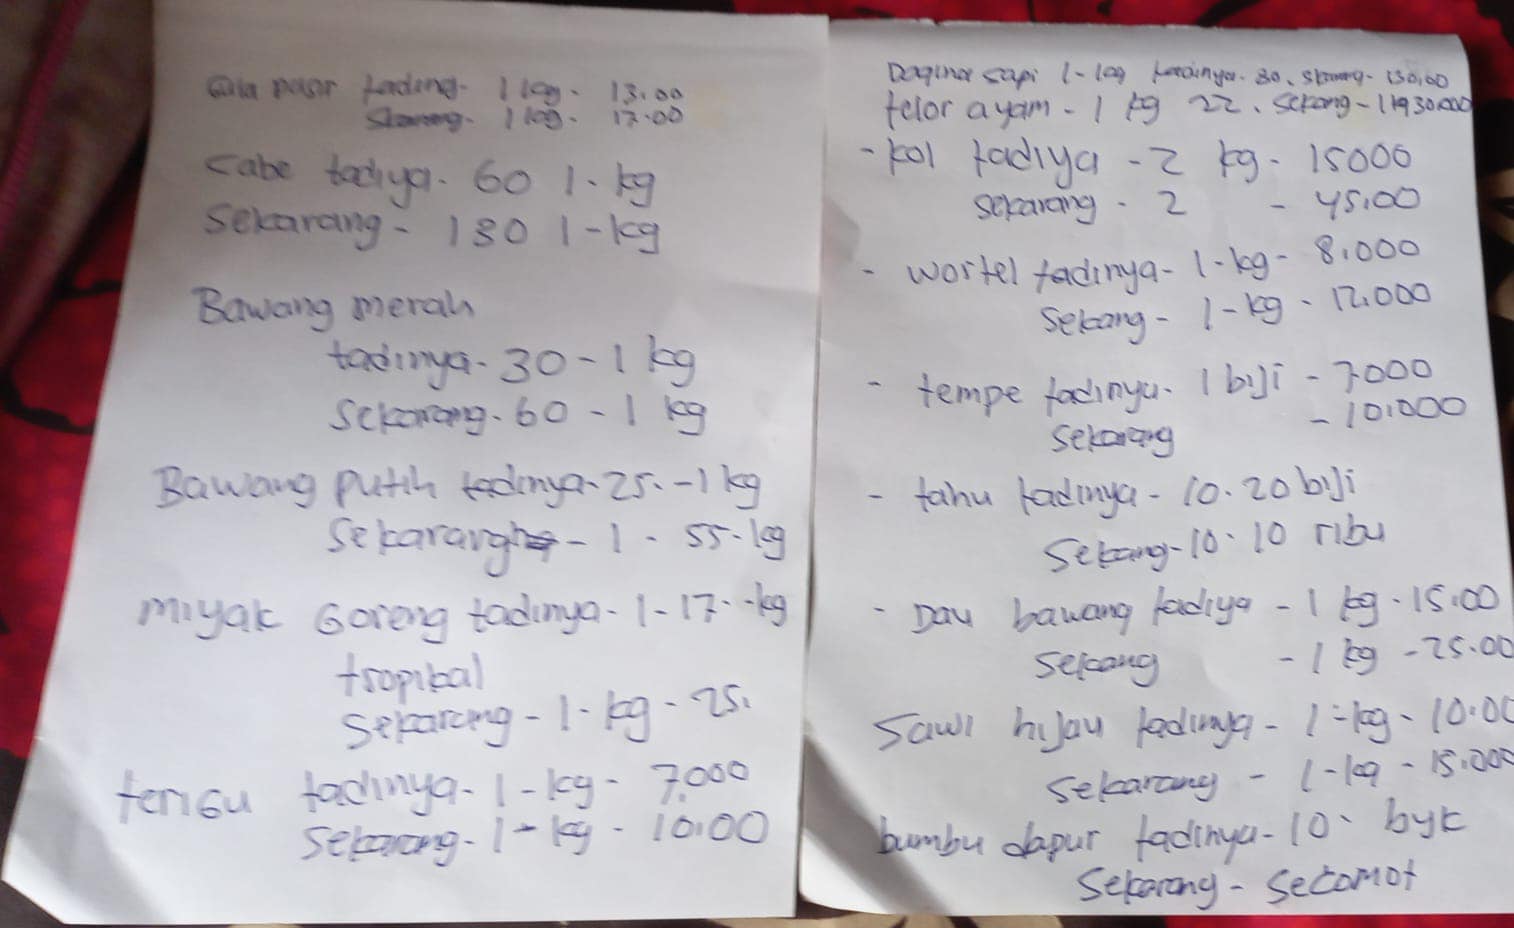 Gula pasir tading- 1 kg - 13.00
Skarang- 1 kg - 17.00
Cabe tadiya- 60 1- kg
Sekarang - 130 1-kg
Bawang merah
tadinya- 30 - 1 kg
Sekarang- 60 - 1 kg
Bawang putih tadinya- 25.-1 kg
Sekarang - 1 - 55-kg
Miyak Goreng tadinya- 1-17.-kg
tropikal
Sekarang - 1- kg - 25.
terigu tadinya- 1-kg - 7.000
Sekarang- 1- kg - 10.00
Daging sapi 1-kg tadinya- 80. Skarang- 130,00
telor ayam - 1 kg 22. Sekang - 1 kg 30.000
- kol tadiya - 2 kg - 15000
sekarang - 2 - 45.00
- wortel tadinya- 1-kg- 8.000
Sekang - 1-kg - 12.000
- tempe tadinya- 1 biji - 7.000
Sekarang - 10.000
- tahu tadinya - 10.20 biji
Sekang- 10- 10 ribu
- Dau bawang tadiya - 1 kg - 15.00
Sekang - 1 kg - 25.00
Sawi hijau tadinya - 1-kg - 10.00
Sekarang - 1-kg - 15.000
bumbu dapur tadinya- 10- byk
Sekarang - Secomot